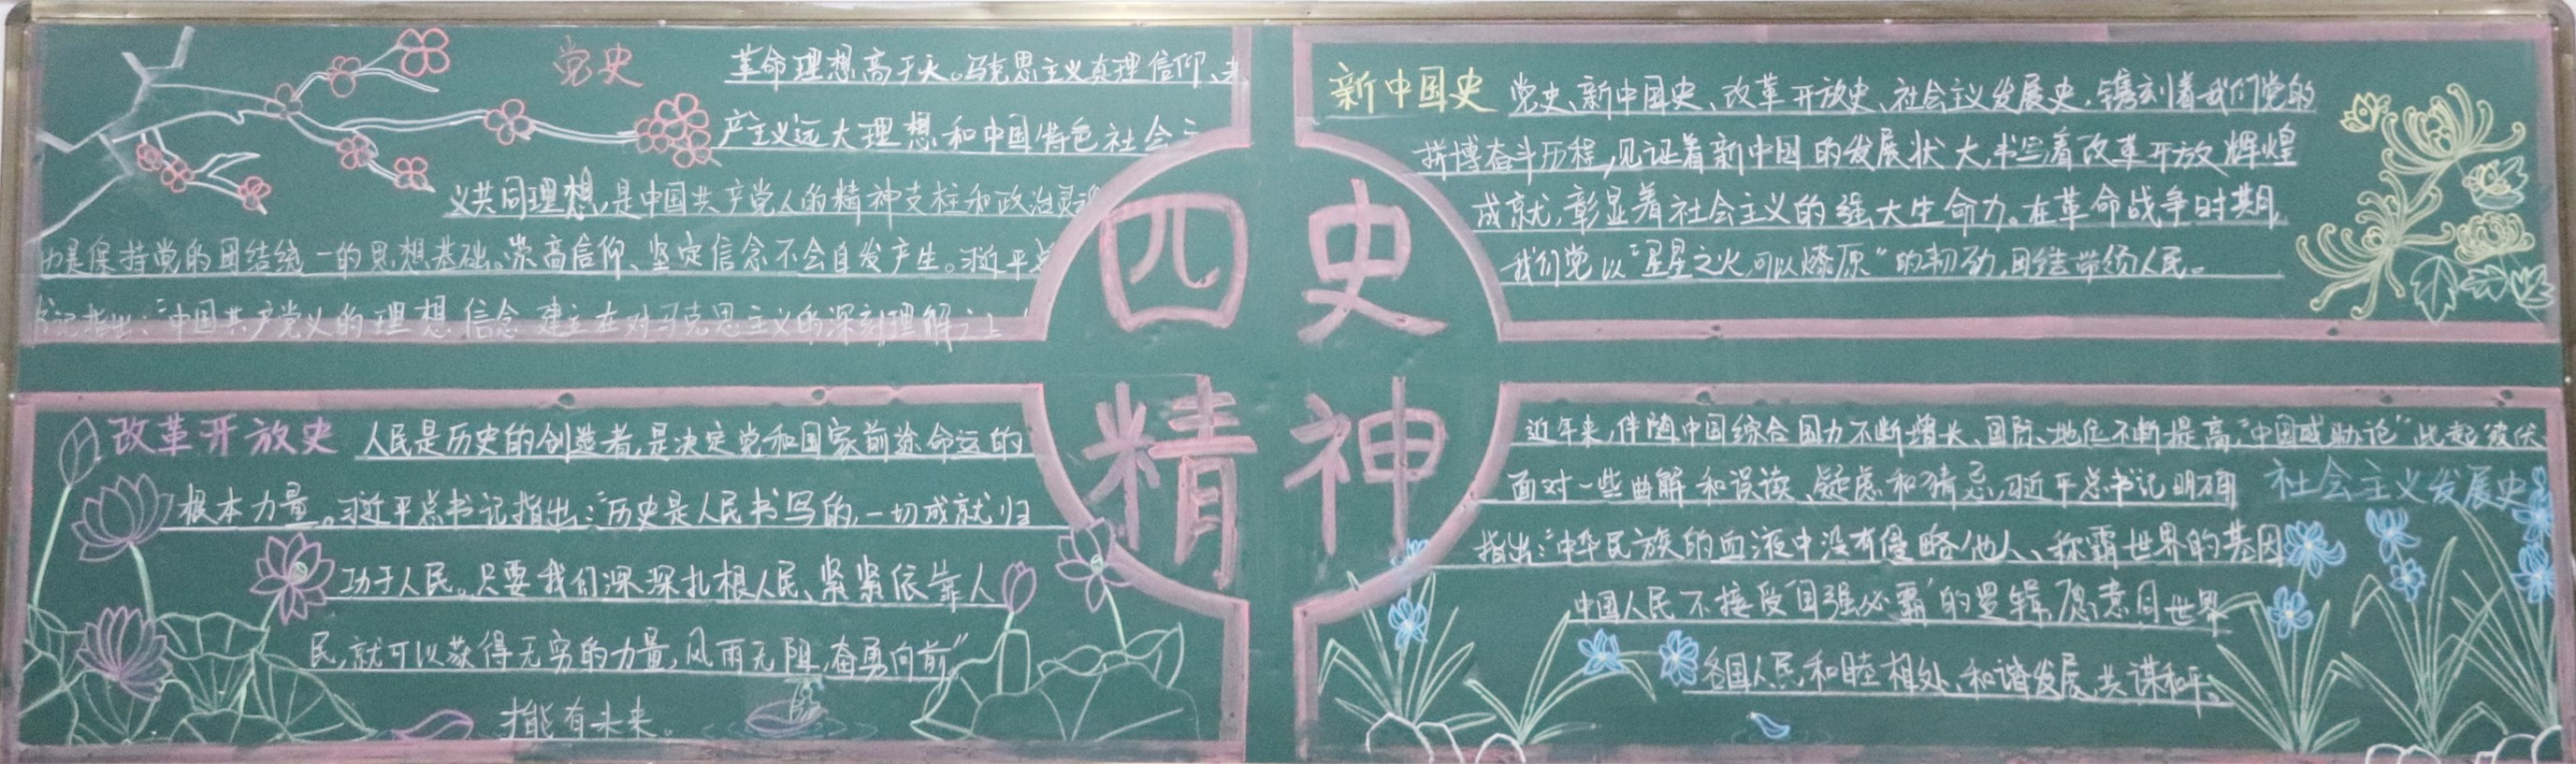 党史
革命理想高于天。马克思主义真理信仰、共
产主义远大理想和中国特色社会主
义共同理想,是中国共产党人的精神支柱和政治灵魂
也是保持党的团结统一的思想基础。崇高信仰、坚定信念不会自发产生。习近平总
书记指出:“中国共产党义的理想信念建立在对马克思主义的深刻理解之上
新中国史
党史、新中国史、改革开放史、社会主义发展史,镌刻着我们党的
拼博奋斗历程,见证着新中国的发展状大,书写着改革开放辉煌
成就,彰显着社会主义的强大生命力。在革命战争时期,
我们党以“星星之火,可以燎原”的韧劲,团结带领人民。
四史
精神
改革开放史
人民是历史的创造者,是决定党和国家前途命运的
根本力量。习近平总书记指出:“历史是人民书写的,一切成就归
功于人民。只要我们深深扎根人民、紧紧依靠人
民,就可以获得无穷的力量,风雨无阻,奋勇向前”
才能有未来。
社会主义发展史
近年来,伴随中国综合国力不断增长、国际地位不断提高,“中国威胁论”此起彼伏
面对一些曲解和误读、疑虑和猜忌,习近平总书记明确
指出:“中华民族的血液中没有侵略他人、称霸世界的基因
中国人民不接受‘国强必霸’的逻辑,愿意同世界
各国人民和睦相处、和谐发展,共谋和平。